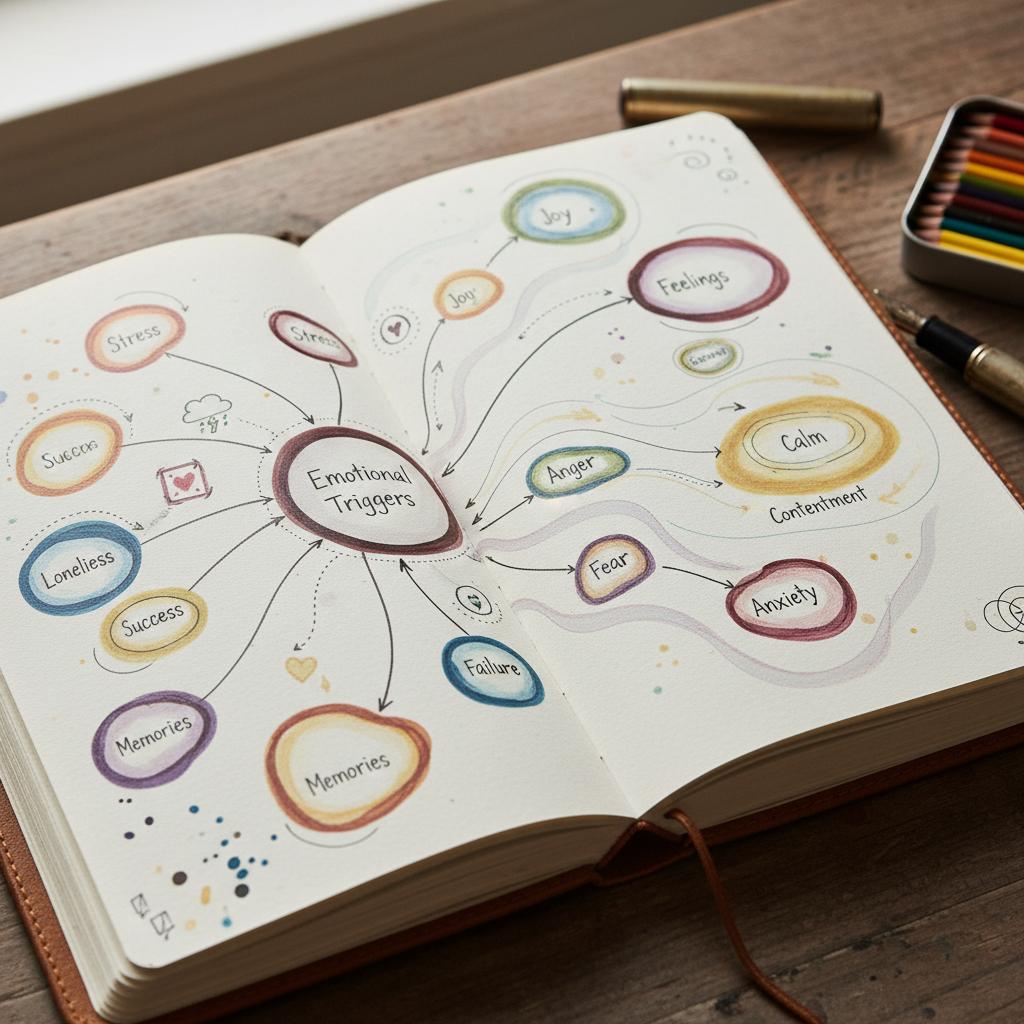 Joy
Joy
Feelings
Stress
Stress
Calm
Contentment
Anger
Emotional
Triggers
Loneliess
Fear
Anxiety
Success
Failure
Memories
Memories